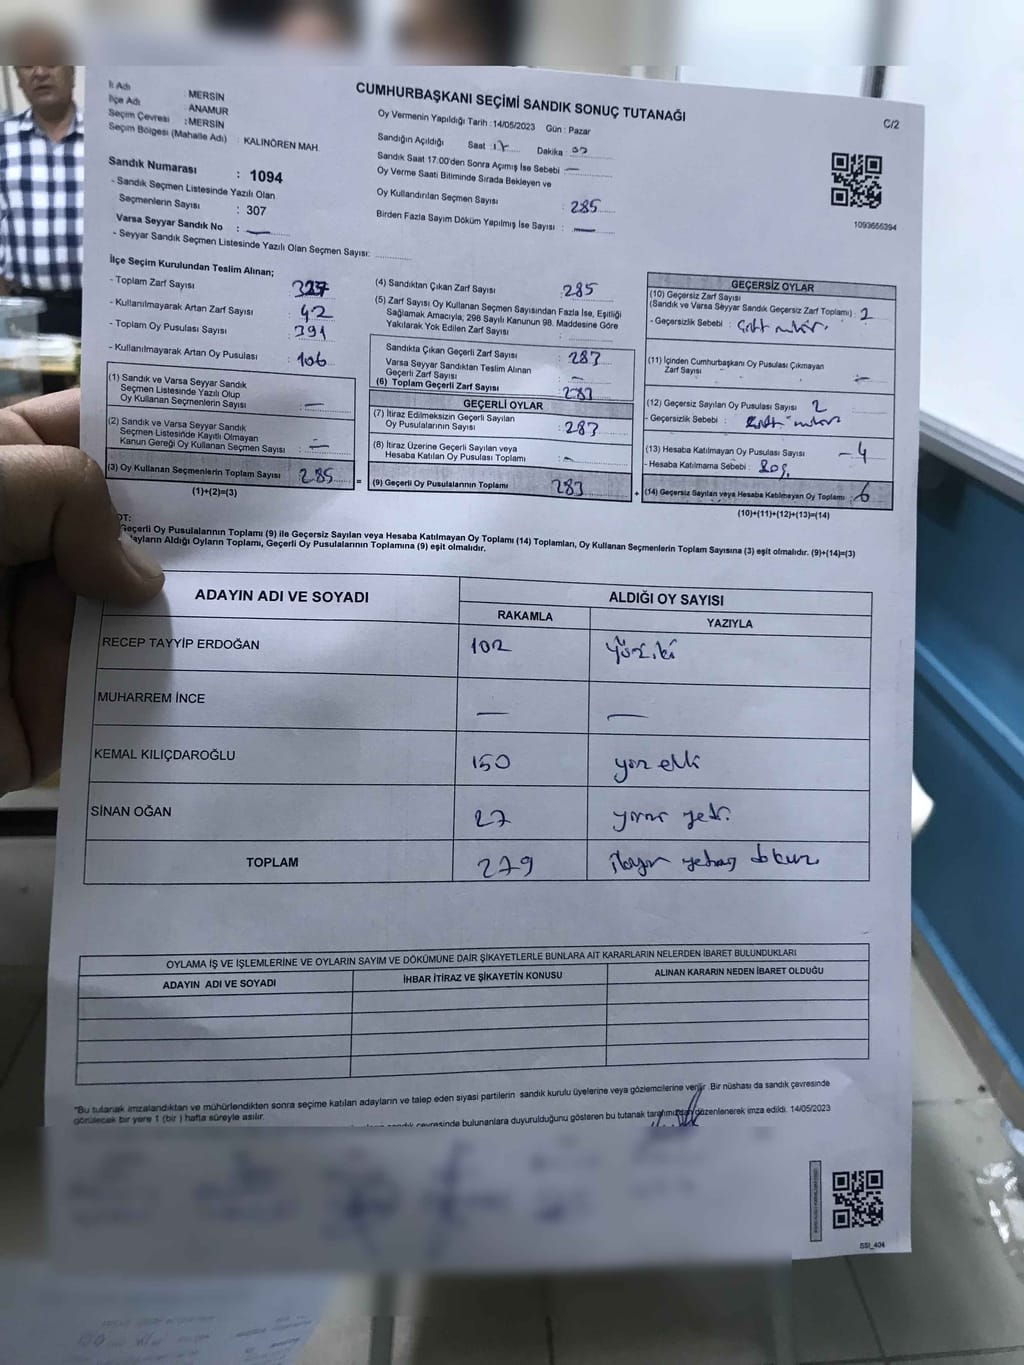 İl Adı : MERSİN
İlçe Adı : ANAMUR
Seçim Çevresi : MERSİN
Seçim Bölgesi (Mahalle Adı) : KALINÖREN MAH.
CUMHURBAŞKANI SEÇİMİ SANDIK SONUÇ TUTANAĞI
C/2
Oy Vermenin Yapıldığı Tarih : 14/05/2023 Gün : Pazar
Sandığın Açıldığı Saat : 17 Dakika :
Sandık Saat 17:00'den Sonra Açımış İse Sebebi : —
Oy Verme Saati Bitiminde Sırada Bekleyen ve
Oy Kullandırılan Seçmen Sayısı : 285
Birden Fazla Sayım Döküm Yapılmış İse Sayısı : —
1093656394
Sandık Numarası : 1094
- Sandık Seçmen Listesinde Yazılı Olan
Seçmenlerin Sayısı : 307
Varsa Seyyar Sandık No : —
- Seyyar Sandık Seçmen Listesinde Yazılı Olan Seçmen Sayısı:
İlçe Seçim Kurulundan Teslim Alınan;
- Toplam Zarf Sayısı : 327
- Kullanılmayarak Artan Zarf Sayısı : 42
- Toplam Oy Pusulası Sayısı : 391
- Kullanılmayarak Artan Oy Pusulası : 106
(1) Sandık ve Varsa Seyyar Sandık
Seçmen Listesinde Yazılı Olup
Oy Kullanan Seçmenlerin Sayısı : —
(2) Sandık ve Varsa Seyyar Sandık
Seçmen Listesinde Kayıtlı Olmayan
Kanun Gereği Oy Kullanan Seçmen Sayısı : —
(3) Oy Kullanan Seçmenlerin Toplam Sayısı 285
(1)+(2)=(3)
(4) Sandıktan Çıkan Zarf Sayısı : 285
(5) Zarf Sayısı Oy Kullanan Seçmen Sayısından Fazla İse, Eşitliği
Sağlamak Amacıyla, 298 Sayılı Kanunun 98. Maddesine Göre
Yakılarak Yok Edilen Zarf Sayısı :
Sandıkta Çıkan Geçerli Zarf Sayısı : 283
Varsa Seyyar Sandıktan Teslim Alınan
Geçerli Zarf Sayısı : —
(6) Toplam Geçerli Zarf Sayısı : 283
GEÇERLİ OYLAR
(7) İtiraz Edilmeksizin Geçerli Sayılan
Oy Pusulalarının Sayısı : 283
(8) İtiraz Üzerine Geçerli Sayılan veya
Hesaba Katılan Oy Pusulası Toplamı : —
= (9) Geçerli Oy Pusulalarının Toplamı 283
GEÇERSİZ OYLAR
(10) Geçersiz Zarf Sayısı
(Sandık ve Varsa Seyyar Sandık Geçersiz Zarf Toplamı) : 2
- Geçersizlik Sebebi :
(11) İçinden Cumhurbaşkanı Oy Pusulası Çıkmayan
Zarf Sayısı : —
(12) Geçersiz Sayılan Oy Pusulası Sayısı : 2
- Geçersizlik Sebebi :
(13) Hesaba Katılmayan Oy Pusulası Sayısı : 4
- Hesaba Katılmama Sebebi : Boş.
+ (14) Geçersiz Sayılan veya Hesaba Katılmayan Oy Toplamı : 6
(10)+(11)+(12)+(13)=(14)
OT:
Geçerli Oy Pusulalarının Toplamı (9) ile Geçersiz Sayılan veya Hesaba Katılmayan Oy Toplamı (14) Toplamları, Oy Kullanan Seçmenlerin Toplam Sayısına (3) eşit olmalıdır. (9)+(14)=(3)
Aldığı Oyların Toplamı, Geçerli Oy Pusulalarının Toplamına (9) eşit olmalıdır.
ADAYIN ADI VE SOYADI
ALDIĞI OY SAYISI
RAKAMLA YAZIYLA
RECEP TAYYİP ERDOĞAN 102 Yüz iki
MUHARREM İNCE — —
KEMAL KILIÇDAROĞLU 150 yüz elli
SİNAN OĞAN 27 yirmi yedi
TOPLAM 279 ikiyüz yetmiş dokuz
OYLAMA İŞ VE İŞLEMLERİNE VE OYLARIN SAYIM VE DÖKÜMÜNE DAİR ŞİKAYETLERLE BUNLARA AİT KARARLARIN NELERDEN İBARET BULUNDUKLARI
ADAYIN ADI VE SOYADI İHBAR İTİRAZ VE ŞİKAYETİN KONUSU ALINAN KARARIN NEDEN İBARET OLDUĞU
*Bu tutanak imzalandıktan ve mühürlendikten sonra seçime katılan adayların ve talep eden siyasi partilerin sandık kurulu üyelerine veya gözlemcilerine verilir. Bir nüshası da sandık çevresinde
görülecek bir yere 1 (bir) hafta süreyle asılır.
sandık çevresinde bulunanlara duyurulduğunu gösteren bu tutanak tarafımızdan düzenlenerek imza edildi. 14/05/2023
SSI_404